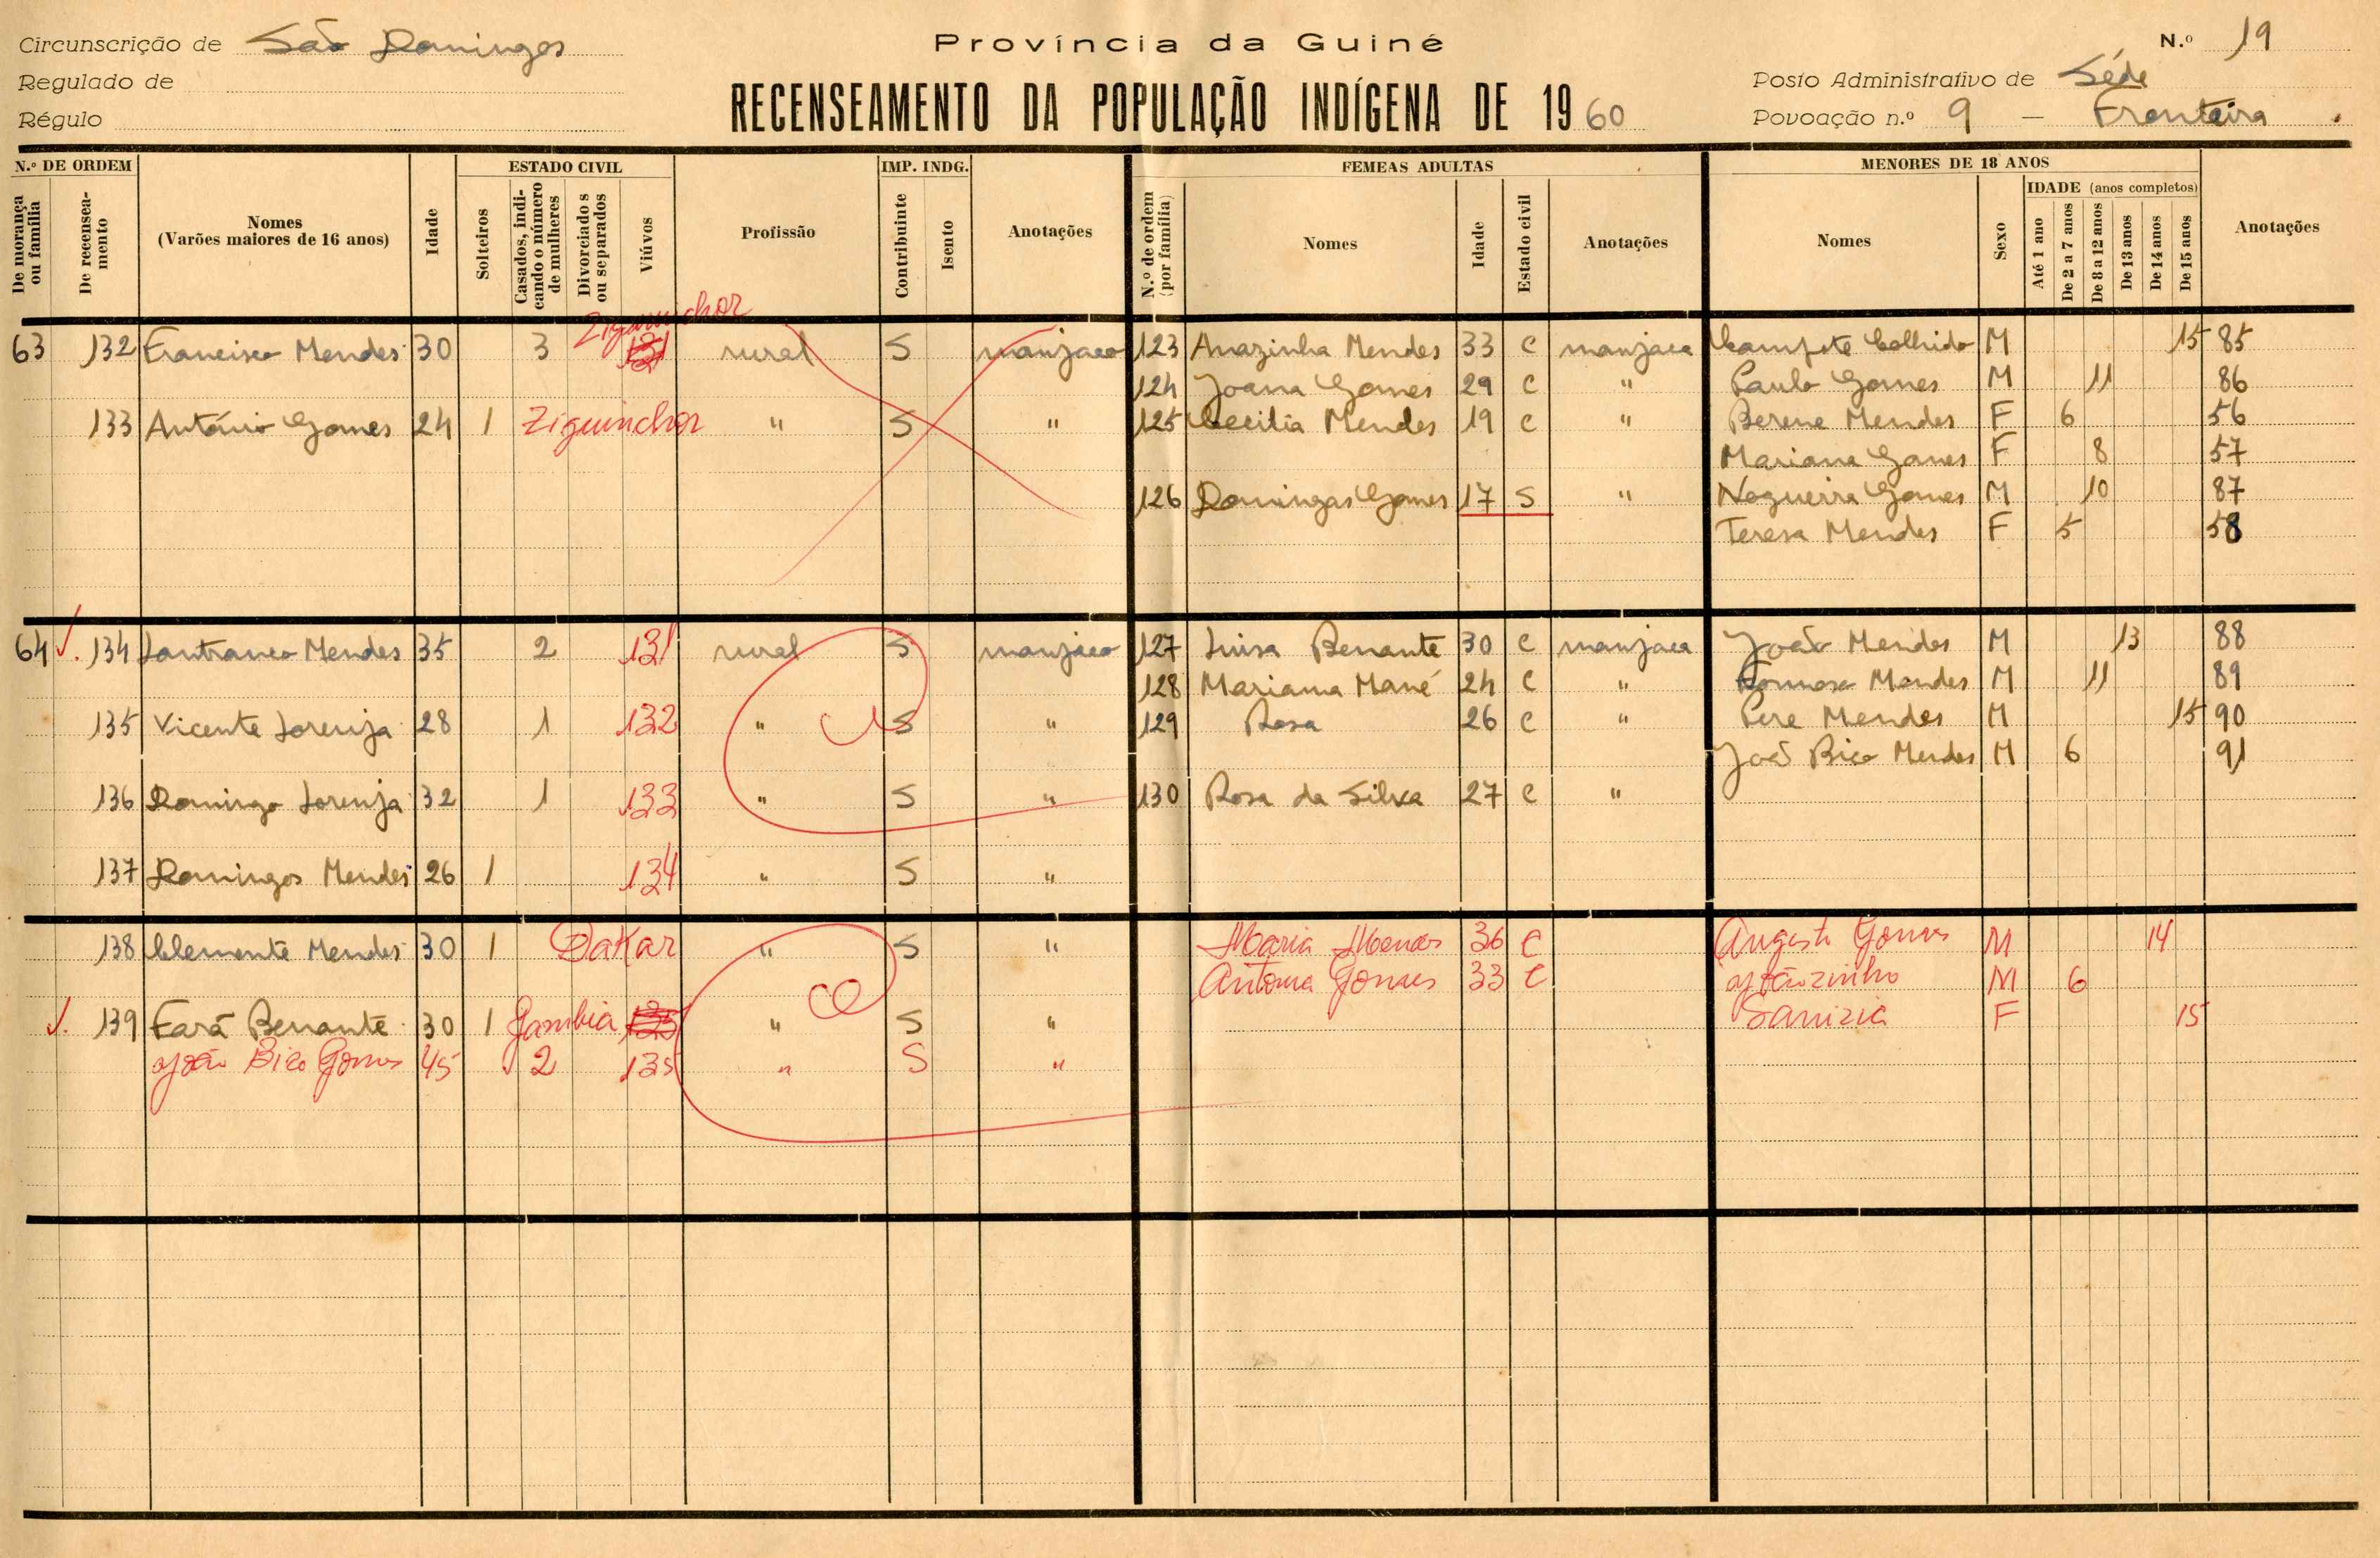 Circunscrição de São Domingos
Regulado de
Régulo
Província da Guiné
RECENSEAMENTO DA POPULAÇÃO INDÍGENA DE 1960
N.º 19
Posto Administrativo de Séde
Povoação n.º 9 — Fronteira.
N.º DE ORDEM ESTADO CIVIL IMP. INDG. FEMEAS ADULTAS MENORES DE 18 ANOS
IDADE (anos completos)
De morança ou família De recenseamento Nomes (Varões maiores de 16 anos) Idade Solteiros Casados, indicando o número de mulheres Divorciados ou separados Viúvos Profissão Contribuinte Isento Anotações N.º de ordem (por família) Nomes Idade Estado civil Anotações Nomes Sexo Até 1 ano De 2 a 7 anos De 8 a 12 anos De 13 anos De 14 anos De 15 anos Anotações
Ziguinchor
63 132 Francisco Mendes 30 3 131 rural S manjaco 123 Anazinha Mendes 33 C manjaca M 15 85
124 Joana Gomes 29 C " Paulo Gomes M 11 86
133 António Gomes 24 1 Ziguinchor " S " 125 Cecilia Mendes 19 C " Berene Mendes F 6 56
Mariana Gomes F 8 57
126 Domingas Gomes 17 S " Nogueira Gomes M 10 87
Teresa Mendes F 5 58
64 134 Mendes 35 2 131 rural S manjaco 127 Luisa Benante 30 C manjaca João Mendes M 13 88
128 Mariama Mané 24 C " Mendes M 11 89
135 Vicente Lorenja 28 1 132 " S " 129 Rosa 26 C " Pere Mendes M 15 90
João Bico Mendes M 6 91
136 Domingo Lorenja 32 1 133 " S " 130 Rosa da Silva 27 C "
137 Domingos Mendes 26 1 134 " S "
138 Clemente Mendes 30 1 Dakar " S " Maria Mendes 36 C Augusto Gomes M 14
Antonia Gomes 33 C Joãozinho M 6
139 Fará Benante 30 1 Gambia 135 " S " F 15
João Bico Gomes 45 2 135 " S "